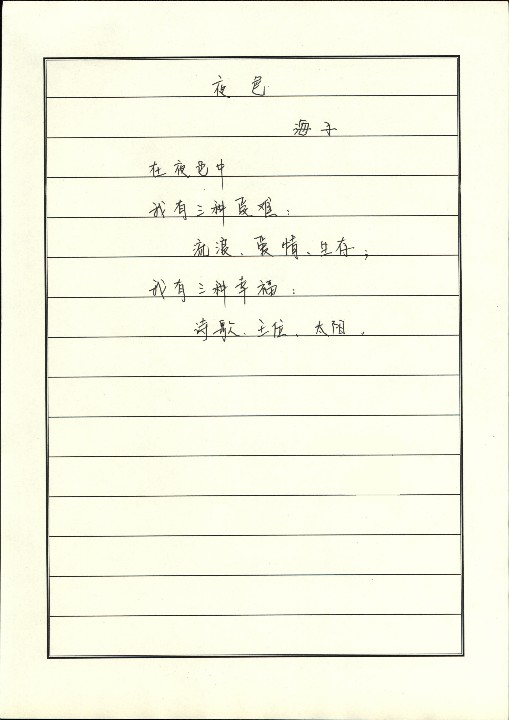 夜色
海子
在夜色中
我有三种受难：
流浪、爱情、生存；
我有三种幸福：
诗歌、王位、太阳。